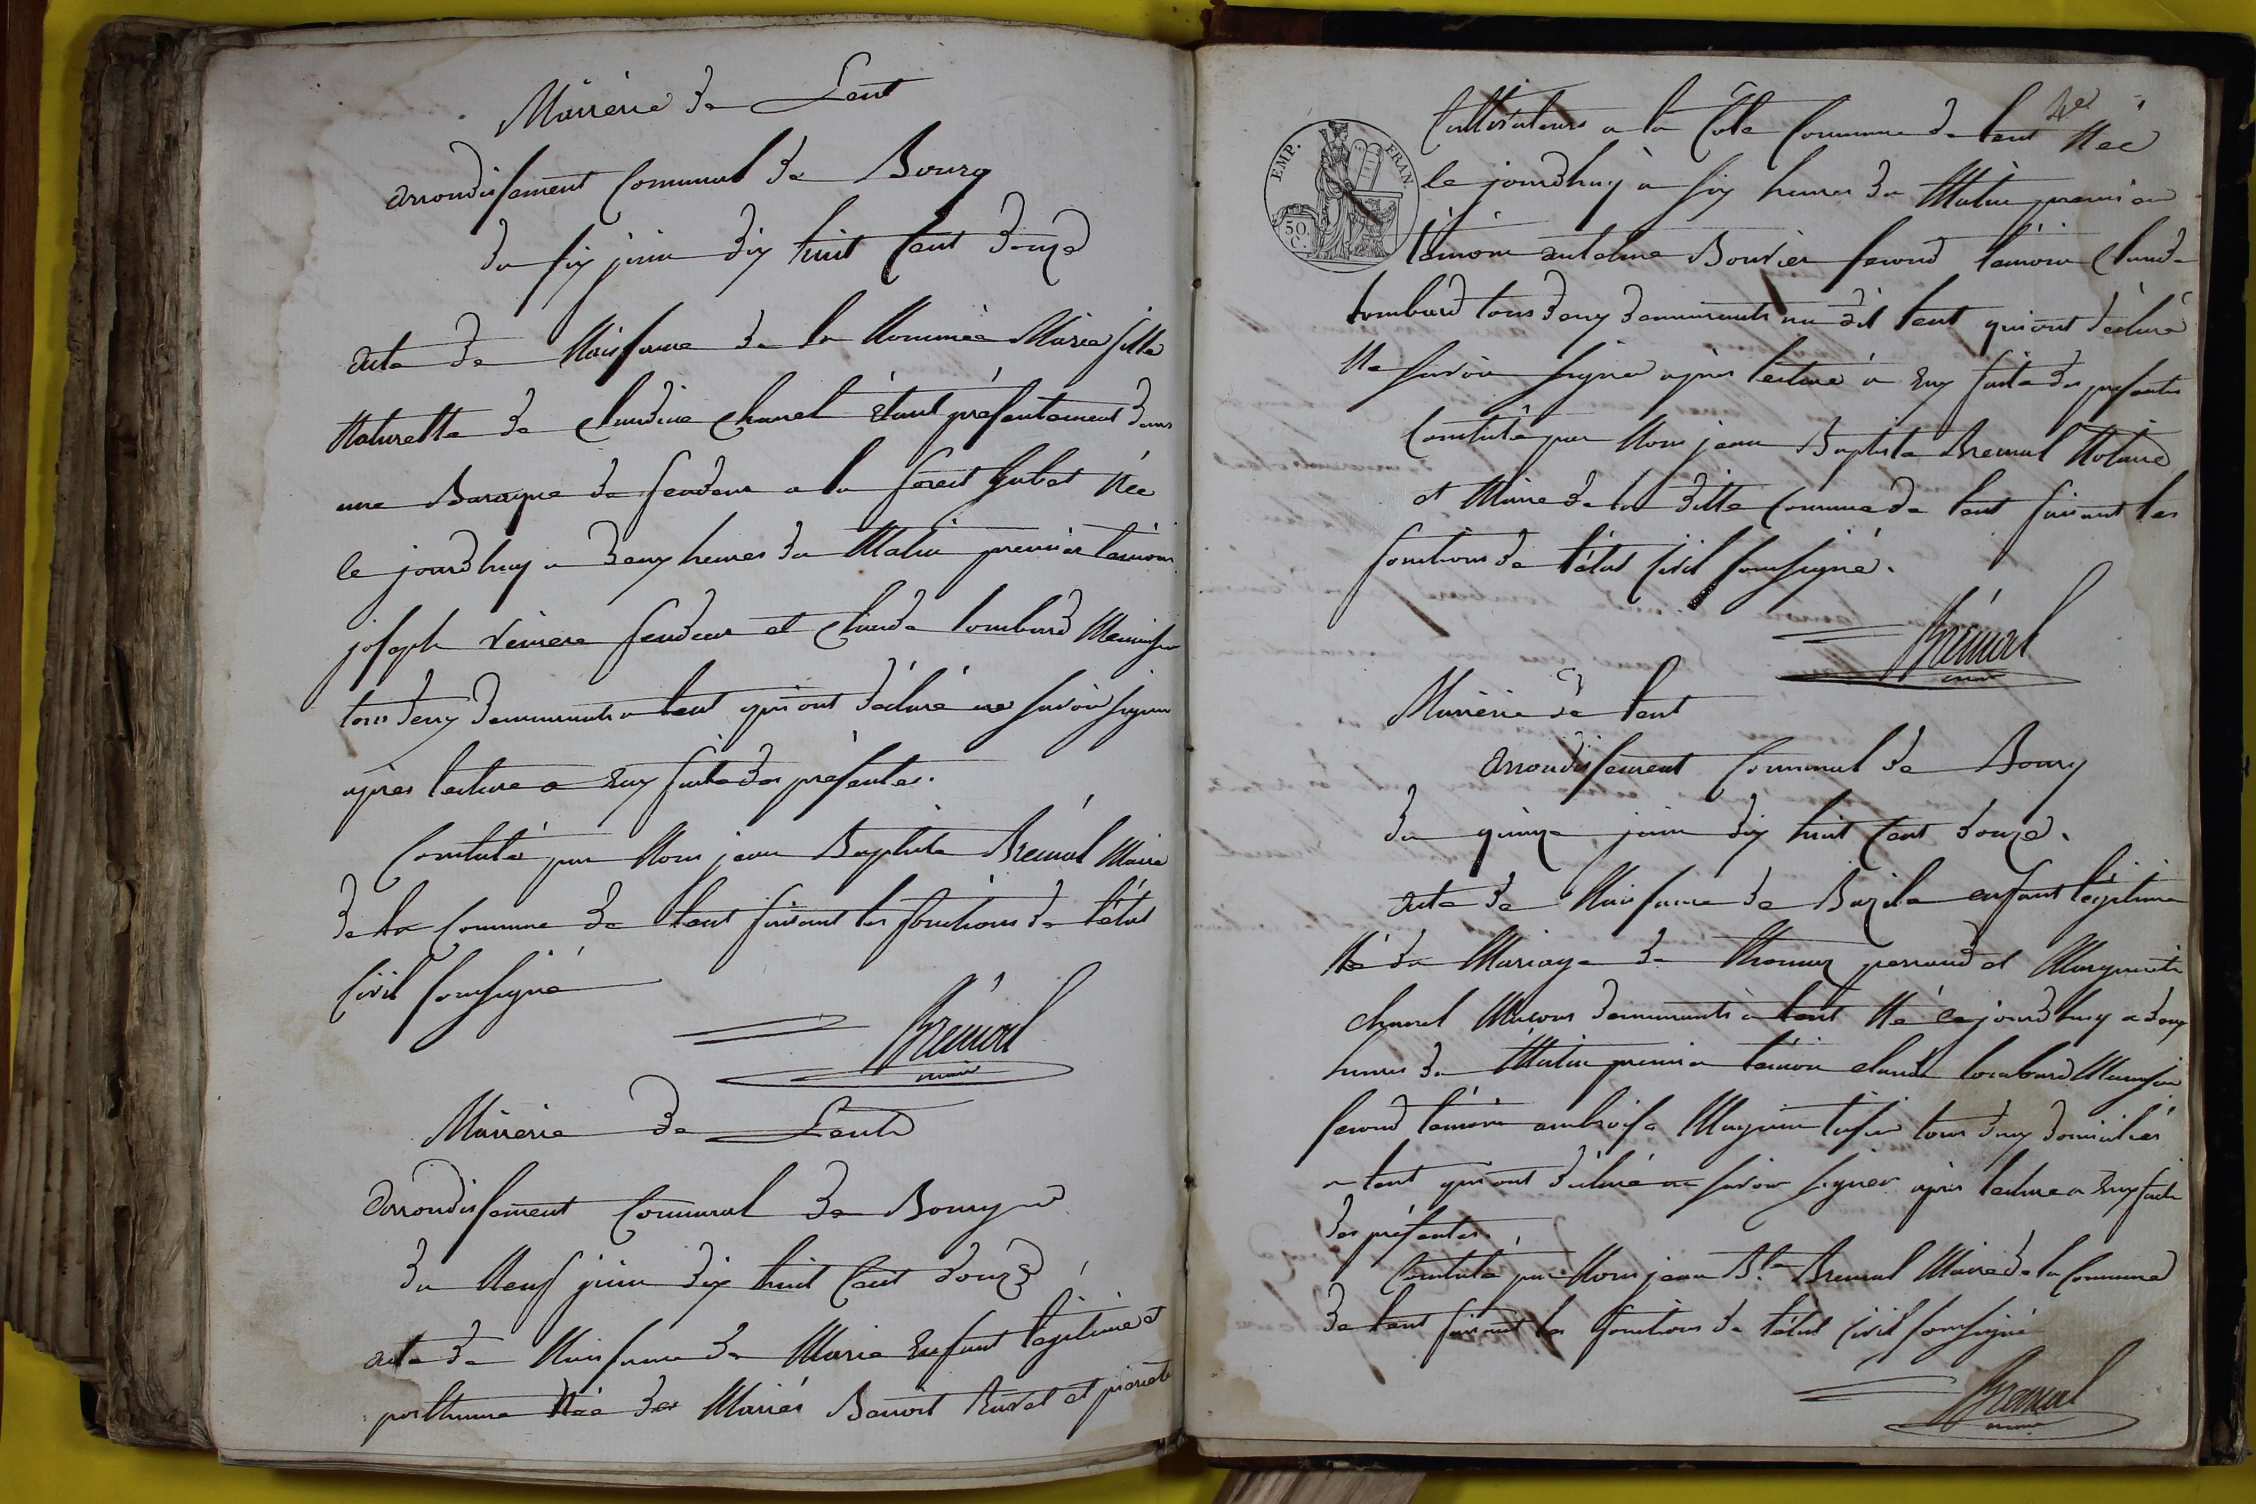 Mairerie de Lent
arrondissement Communal de Bourg
du six juin dix huit Cent douze
acte de Naissance de la Nommée Marie fille
Naturelle de Claudine Chanel étant présentement dans
une Baraque de fendeur a la forest Née
le jourdhuy a deux heures du Matin premier témoin
joseph fendeur et Claude Lombard Menuisier
tous deux demeurants a Lent qui ont déclaré ne savoir signer
après lecture a Eux faite des présentes.
Constaté par Nous jean Baptiste Bréval Maire
de la Commune de Lent faisant les fonctions de l'état
Civil soussigné
Bréval
maire
Mairerie de Lent
arrondissement Communal de Bourg
du Neuf juin dix huit Cent douze
acte de Naissance de Marie Enfant légitime et
posthume Née des Mariés Benoit et
Cultivateurs a la Côte Commune de Lent Née
EMP. FRAN.
50. C.
le jourdhuy a six heures du Matin premier
témoin antoine Bouvier second témoin Claude
Lombard tous deux demeurants au dit Lent qui ont déclaré
Ne savoir signer après lecture a Eux faite des présentes
Constaté par Nous jean Baptiste Bréval Notaire
et Maire de la ditte Commune de Lent faisant les
fonctions de l'état Civil soussigné.
Bréval
maire
Mairerie de Lent
arrondissement Communal de Bourg
du quinze juin dix huit Cent douze.
acte de Naissance de Bazile enfant légitime
Né du Mariage de Thomas perraud et Marguerite
Chanel Macons demeurants a Lent Né le jourdhuy a deux
heures du Matin premier témoin Claude Lombard Menuisier
second témoin ambroise tous deux domiciliés
a Lent qui ont déclaré ne savoir signer après lecture a Eux faite
des présentes.
Constaté par Nous jean Bte Bréval Maire de la Commune
de Lent faisant les fonctions de l'état Civil soussigné
Bréval
maire